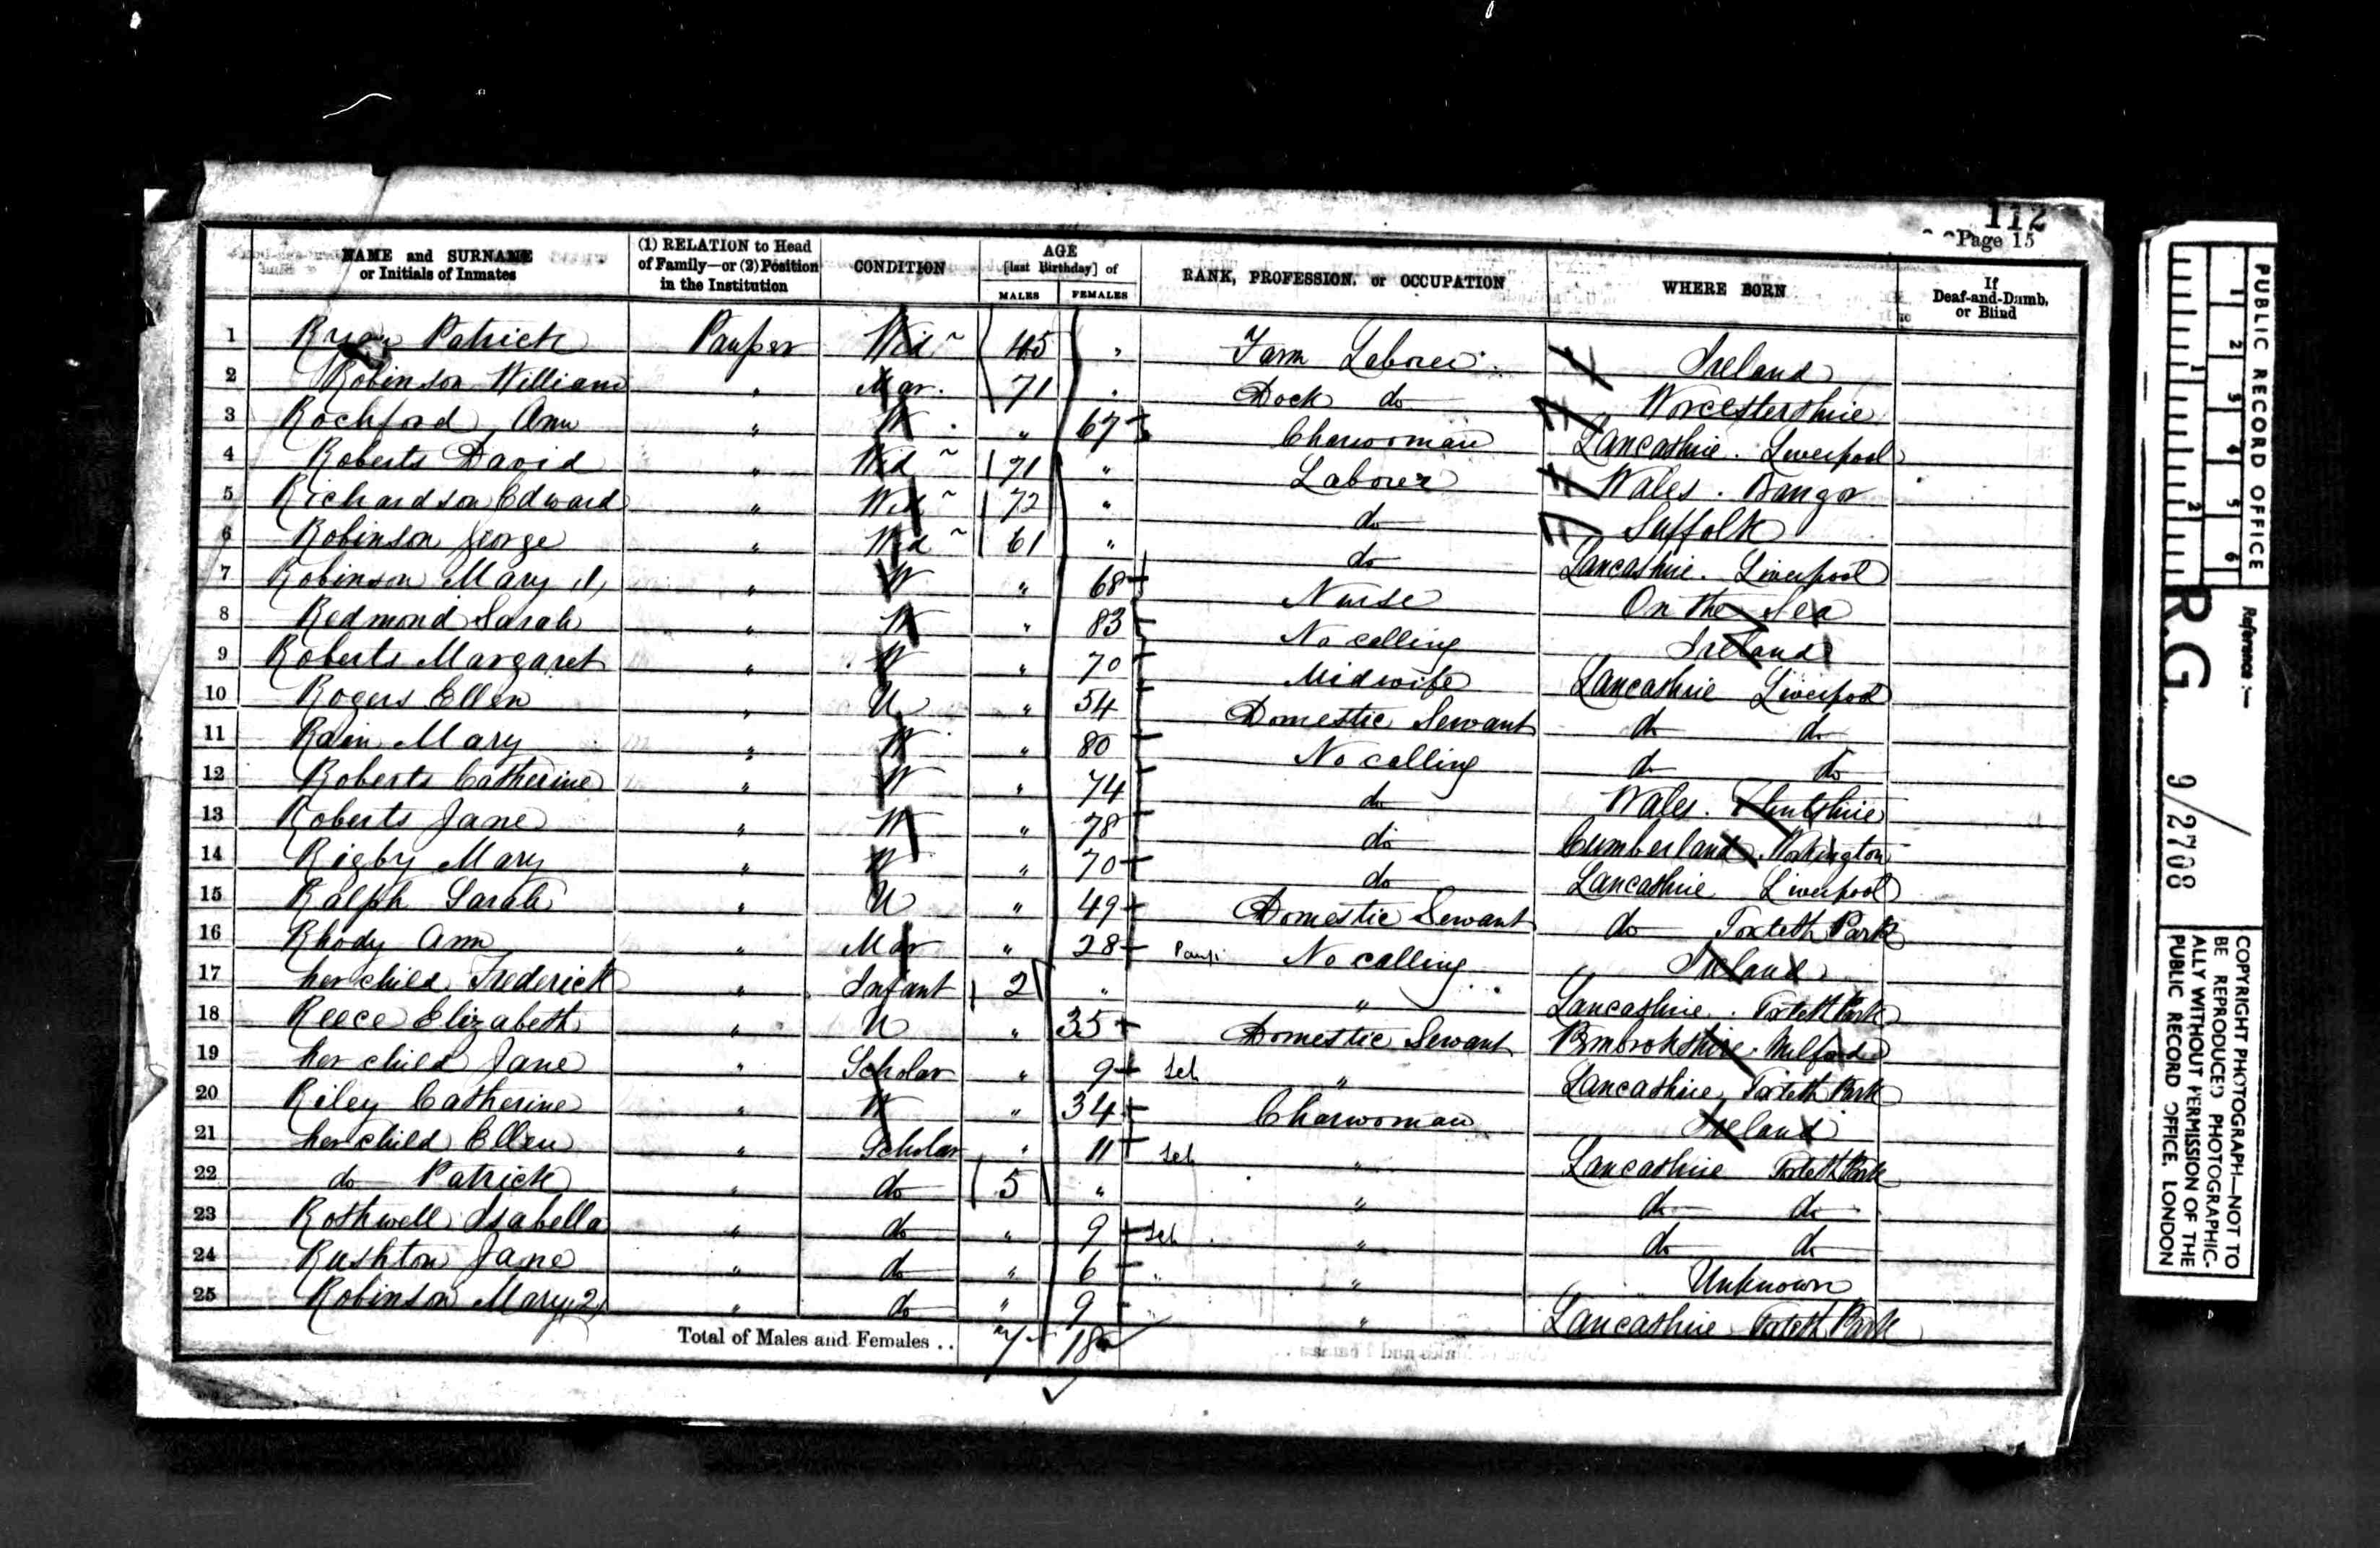 112
Page 15
NAME and SURNAME or Initials of Inmates | (1) RELATION to Head of Family—or (2) Position in the Institution | CONDITION | AGE [last Birthday] of MALES FEMALES | RANK, PROFESSION, or OCCUPATION | WHERE BORN | If Deaf-and-Dumb, or Blind
1 Ryan Patrick Pauper Wid 45 " Farm Laborer Ireland
2 Robinson William " Mar. 71 " Dock do Worcestershire
3 Rochford Ann " W " 67 Charwoman Lancashire. Liverpool
4 Roberts David " Wid 71 " Laborer Wales. Bangor
5 Richardson Edward " Wid 72 " do Suffolk
6 Robinson George " Wid 61 " do Lancashire. Liverpool
7 Robinson Mary (1) " W " 68 Nurse On the Sea
8 Redmond Sarah " W " 83 No calling Ireland
9 Roberts Margaret " W " 70 Midwife Lancashire Liverpool
10 Rogers Ellen " U " 54 Domestic Servant do do
11 Rain Mary " W " 80 No calling do do
12 Roberts Catherine " W " 74 do Wales. Flintshire
13 Roberts Jane " W " 78 do Cumberland. Workington
14 Rigby Mary " W " 70 do Lancashire Liverpool
15 Ralph Sarah " U " 49 Domestic Servant do Toxteth Park
16 Rhody Ann " Mar " 28 No calling Ireland
17 her child Frederick " Infant 2 " " Lancashire. Toxteth Park
18 Reece Elizabeth " U " 35 Domestic Servant Pembrokshire. Milford
19 her child Jane " Scholar " 9 Sch " Lancashire Toxteth Park
20 Riley Catherine " W " 34 Charwoman Ireland
21 her child Ellen " Scholar " 11 Sch " Lancashire Toxteth Park
22 do Patrick " do 5 " " do do
23 Rothwell Isabella " do " 9 Sch " do do
24 Rushton Jane " do " 6 " " Unknown
25 Robinson Mary (2) " do " 9 " " Lancashire Toxteth Park
Total of Males and Females .. 7 18
PUBLIC RECORD OFFICE
1 2 3 4 5 6
1 2
Reference :—
R.G. 9/2708
COPYRIGHT PHOTOGRAPH—NOT TO
BE REPRODUCED PHOTOGRAPHIC-
ALLY WITHOUT PERMISSION OF THE
PUBLIC RECORD OFFICE, LONDON